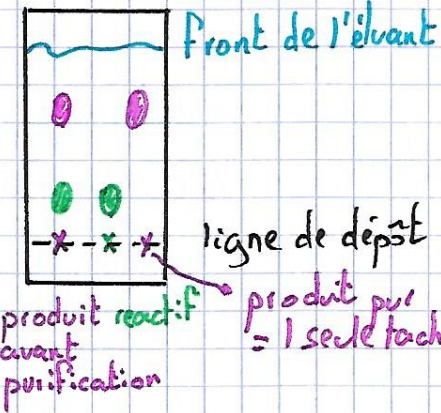 front de l'éluant
ligne de dépôt
produit réactif
avant
purification
produit pur
= 1 seule tach